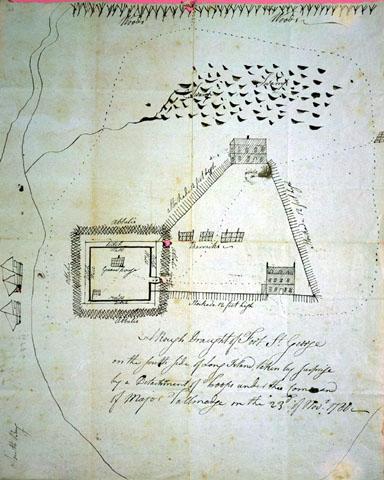 Woods
Woods
Swamp
Stockade 12 feet high
Abbatis
Ditch
Guard house
Abbatis
Barracks
Stockade 12 feet high
A Rough Draught of Fort St. George
on the south side of Long Island taken by surprise
by a Detachment of troops under the Command
of Major Tallmadge on the 23d of Novr. 1780